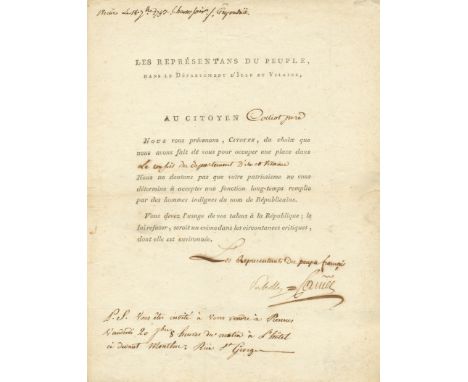 LES REPRÉSENTANS DU PEUPLE,
DANS LE DÉPARTEMENT D'ILLE ET VILAINE,
AU CITOYEN
NOUS vous prévenons, CITOYEN, du choix que
nous avons fait de vous pour occuper une place dans
Le conseil du departement
Nous ne doutons pas que votre patriotisme ne vous
détermine à accepter une fonction long-temps remplie
par des hommes indignes du nom de Républicains.
Vous devez l'usage de vos talens à la République; le
lui refuser, seroit un crime dans les circonstances critiques,
dont elle est environnée.
Les Representants du peuple français
P.S. Vous êtes invité à Vous rendre à Rennes
Vendredi 20 8 heures du matin à l'hotel
ci devant Rue St George